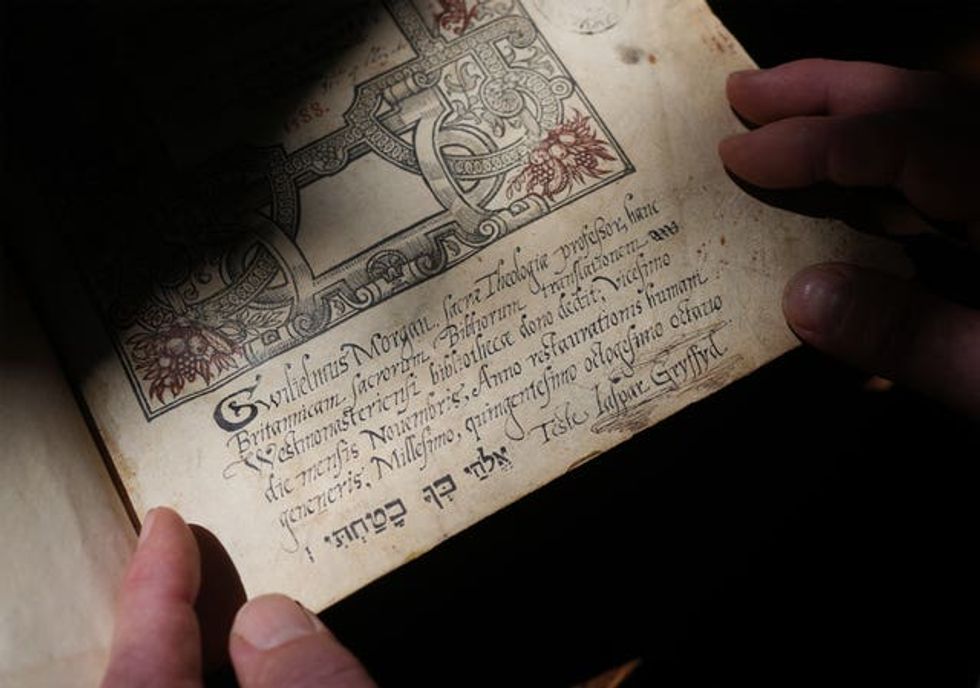 1588.
Gwilielmus Morgan, sacræ Theologiæ professor, hanc
Britannicam sacrorum Bibliorum translationem
Westmonasteriensi bibliothecæ dono dedit, vicesimo
die mensis Novembris, Anno restaurationis humani
generis, Millesimo, quingentesimo octogesimo octavo
Teste Iaspar Gryffyd
אֱלֹהַי בְּךָ בָטַחְתִּי׃